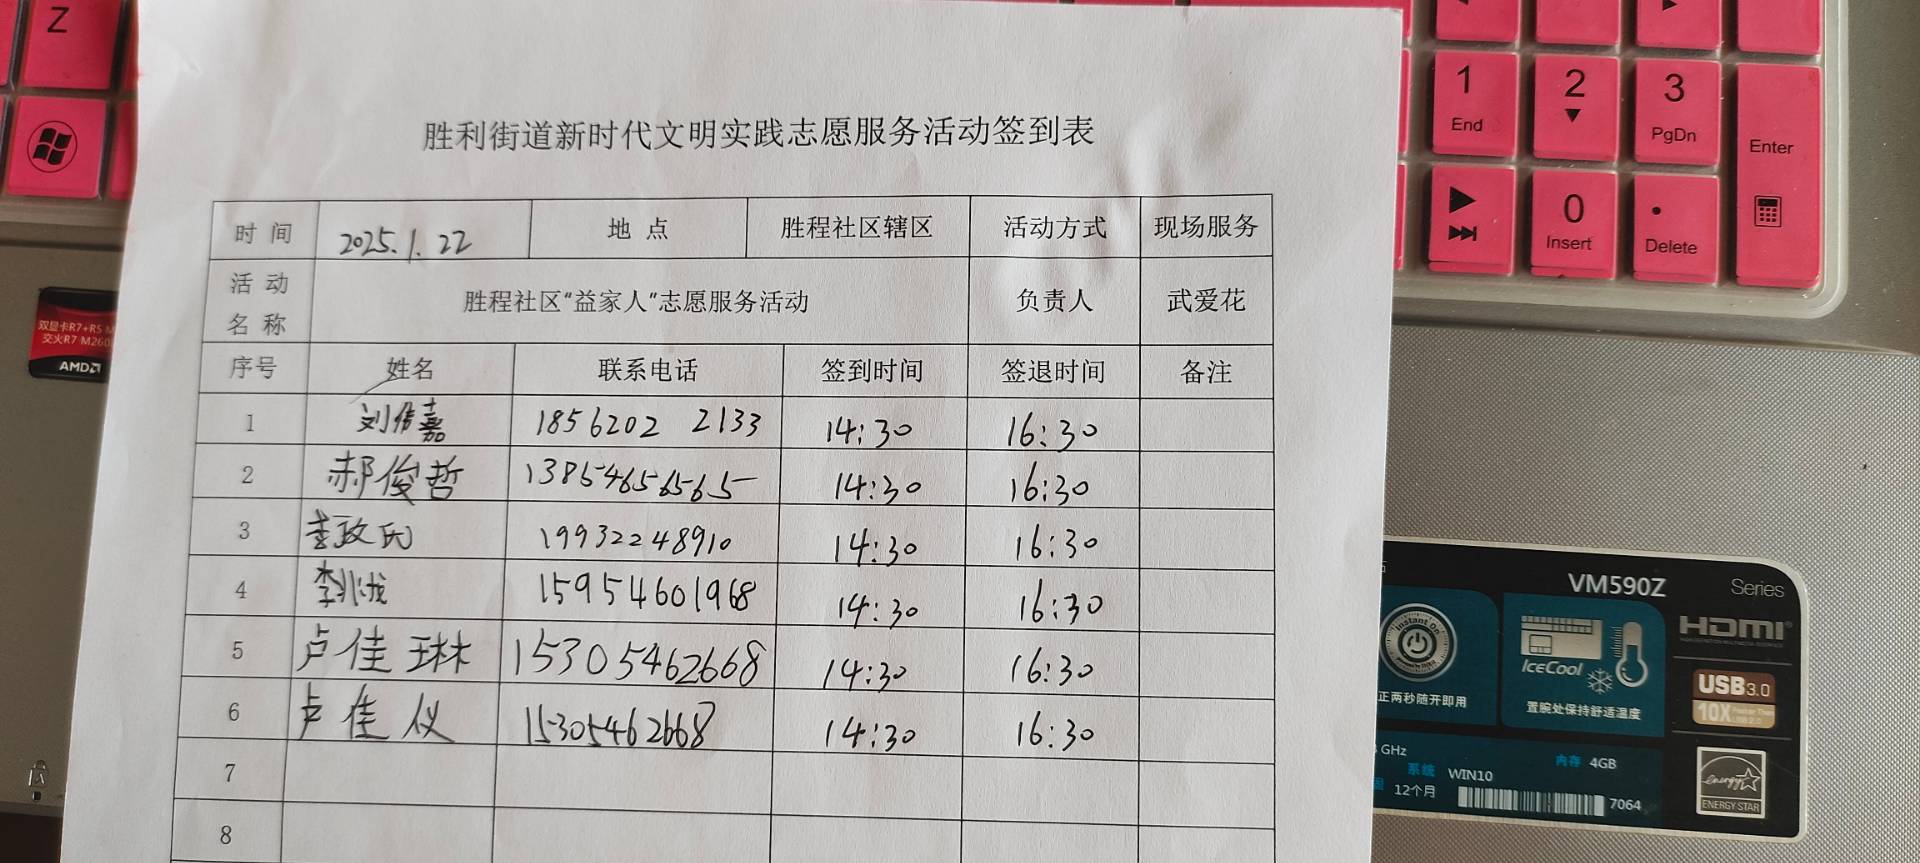 Z
1
End
2
3
PgDn
Enter
0
Insert
.
Delete
胜利街道新时代文明实践志愿服务活动签到表
时 间 2025.1.22 地 点 胜程社区辖区 活动方式 现场服务
活 动 名 称 胜程社区“益家人”志愿服务活动 负责人 武爱花
序号 姓名 联系电话 签到时间 签退时间 备注
1 刘倩嘉 1856202 2133 14:30 16:30
2 郝俊哲 13854656565 14:30 16:30
3 李政氏 19932248910 14:30 16:30
4 李兆 15954601968 14:30 16:30
5 卢佳琳 15305462668 14:30 16:30
6 卢佳仪 15305462668 14:30 16:30
7
8
双显卡R7+R5 M
交火R7 M260
AMD
VM590Z Series
Instant On
IceCool
HDMI
正两秒随开即用
置腕处保持舒适温度
USB3.0
10X
GHz
内存 4GB
系统 WIN10
12个月
7064
energy
ENERGY STAR